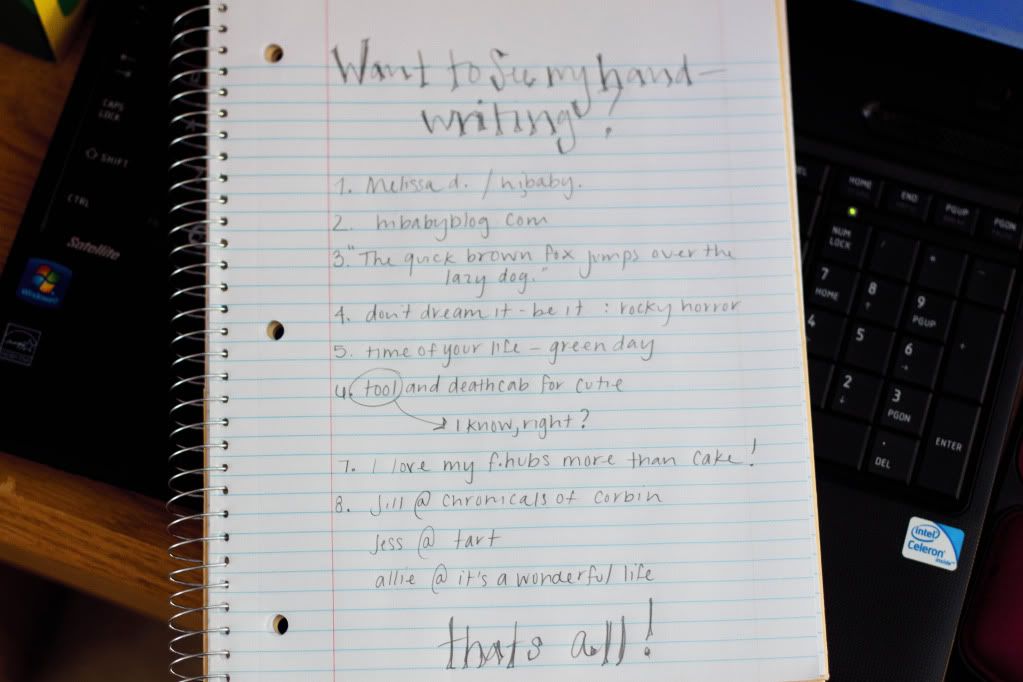 Want to See my hand-
writing?
1. Melissa d. / hjbaby.
2. hibabyblog com
3. "The quick brown fox jumps over the
lazy dog."
4. don't dream it - be it : rocky horror
5. time of your life - green day
6. tool and deathcab for cutie
I know, right?
7. I love my f.hubs more than cake!
8. Jill @ chronicals of corbin
Jess @ tart
allie @ it's a wonderful life
thats all!
CAPS
LOCK
SHIFT
CTRL
Satellite
HOME
END
PGUP
PGDN
NUM
LOCK
/
*
-
7
HOME
8
9
PGUP
+
4
5
6
2
3
PGDN
ENTER
.
DEL
intel
Celeron
inside